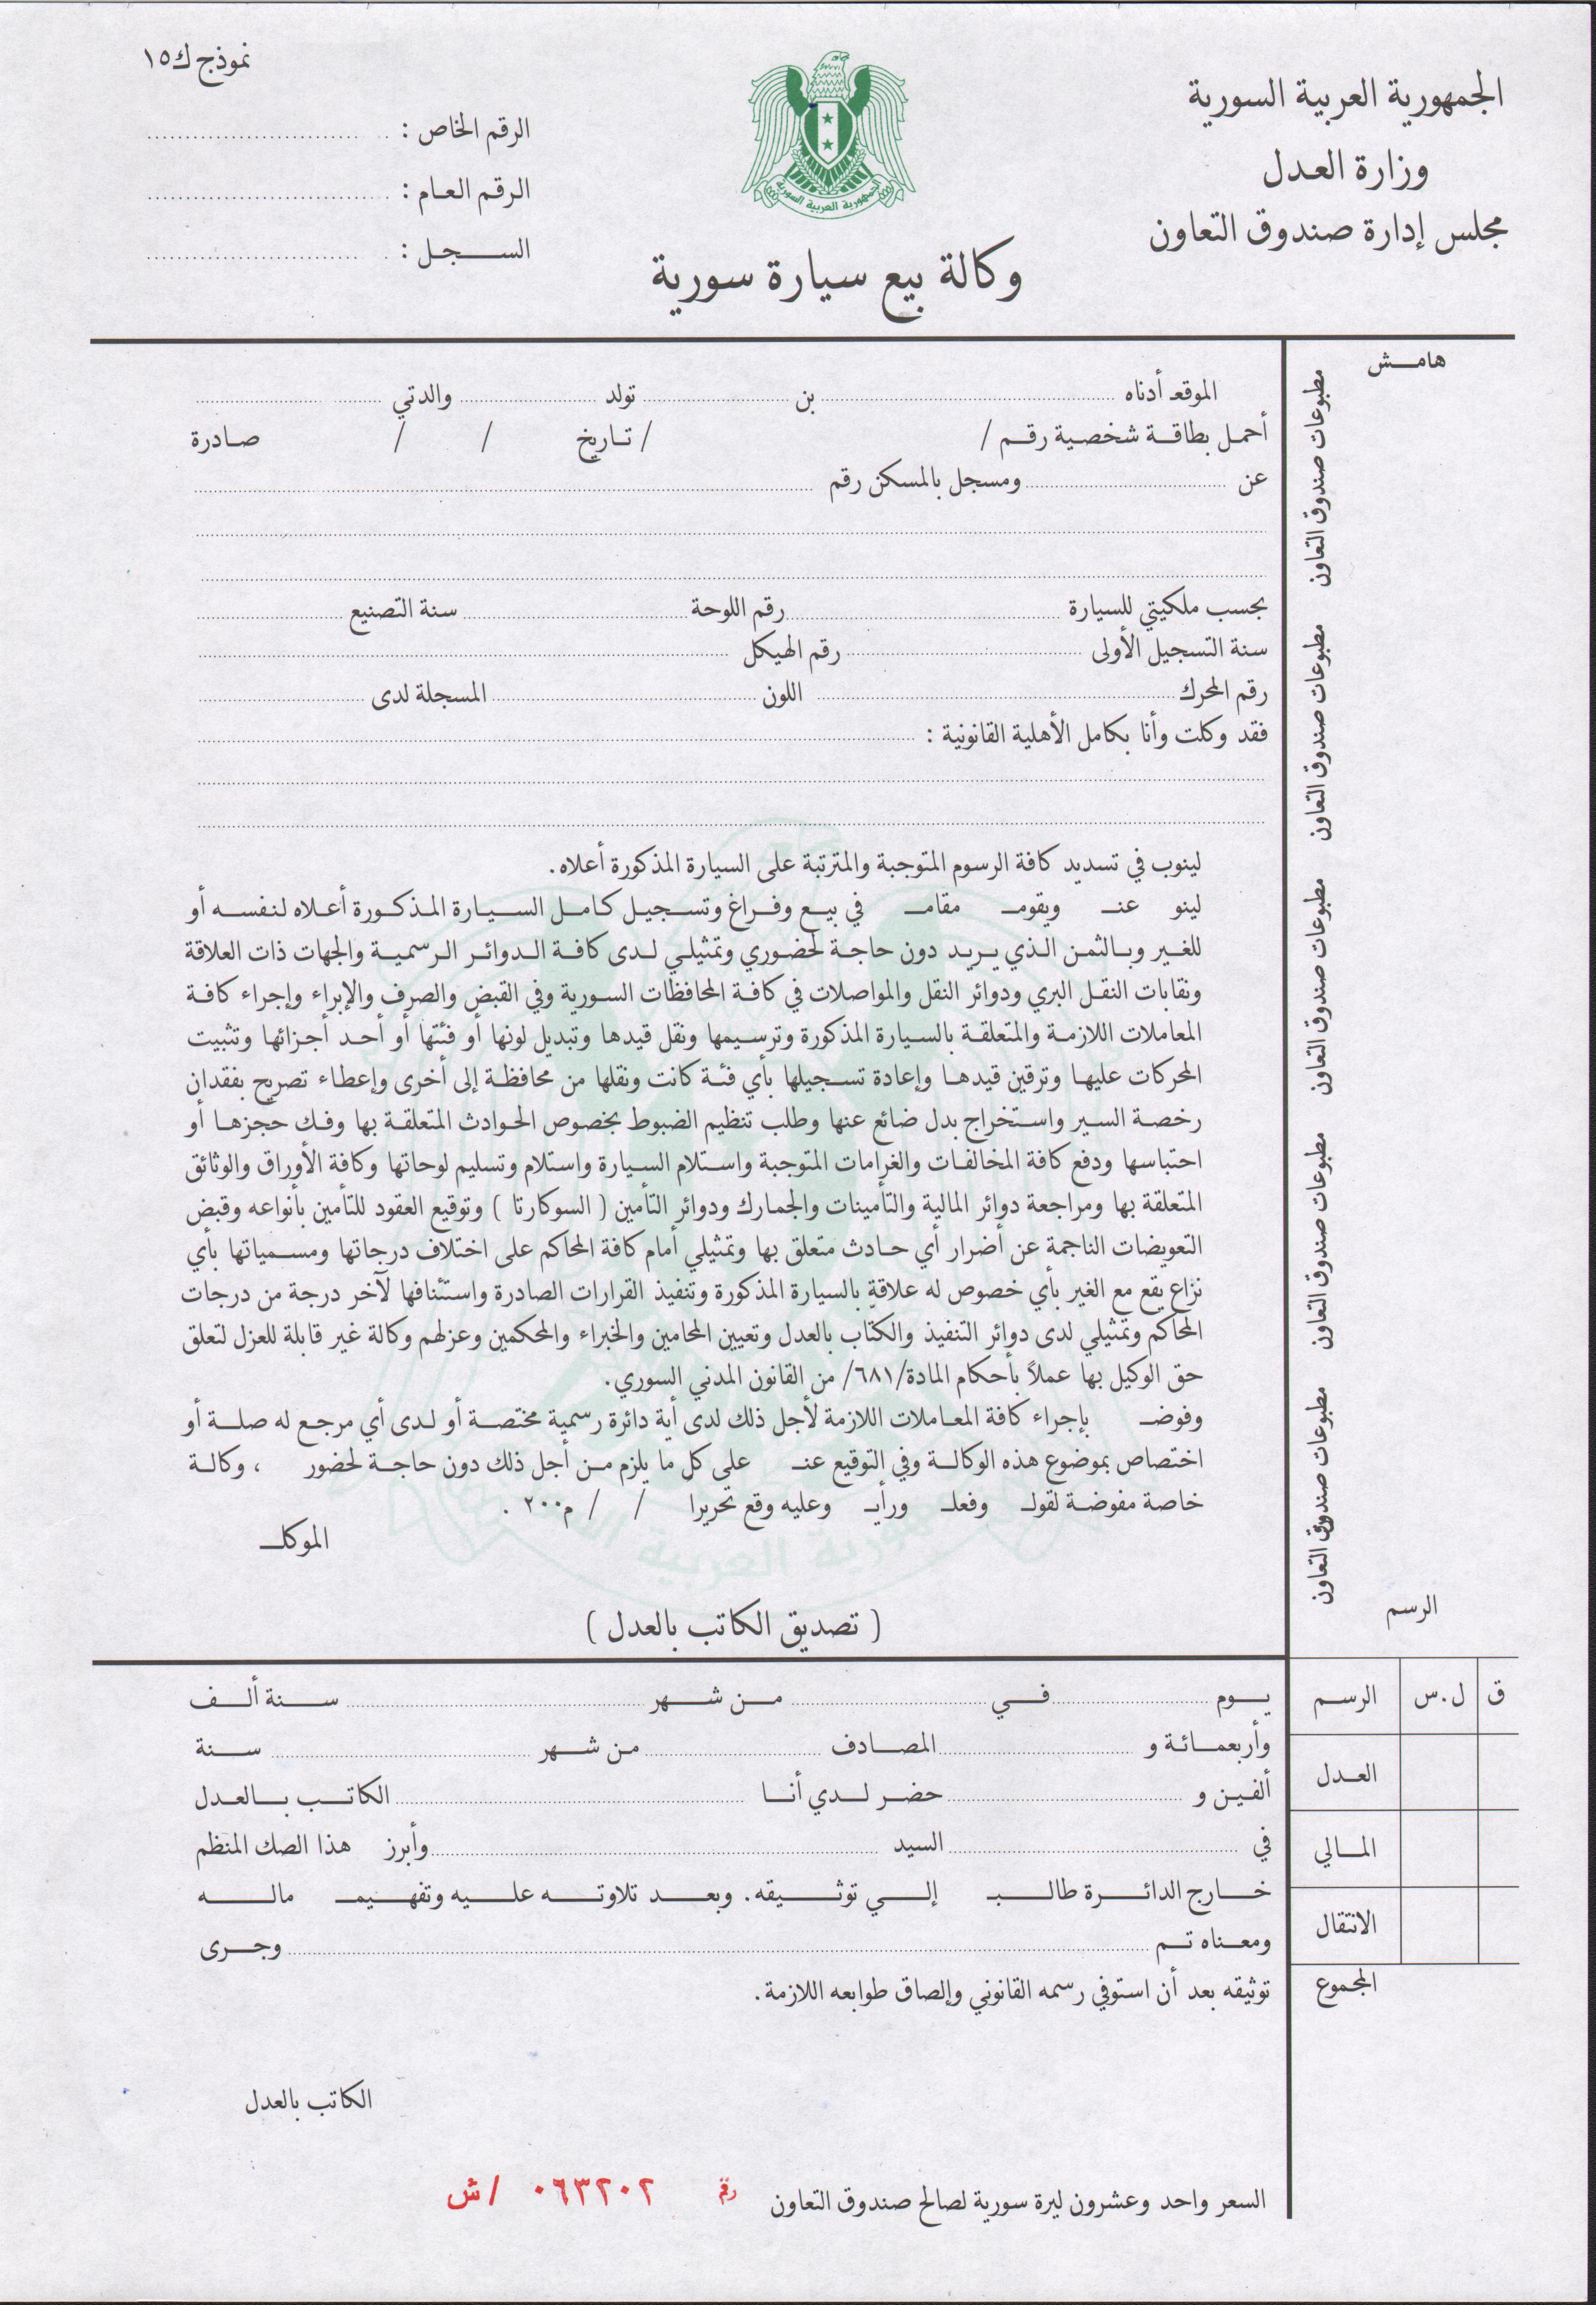 الجمهورية العربية السورية
وزارة العدل
مجلس إدارة صندوق التعاون
الجمهورية العربية السورية
وكالة بيع سيارة سورية
نموذج ك١٥
الرقم الخاص :
الرقم العام :
السجل :
هامش
مطبوعات صندوق التعاون
مطبوعات صندوق التعاون
مطبوعات صندوق التعاون
مطبوعات صندوق التعاون
مطبوعات صندوق التعاون
الموقع أدناه بن تولد والدتي
أحمل بطاقة شخصية رقم / / تاريخ / / صادرة
عن ومسجل بالمسكن رقم
بحسب ملكيتي للسيارة رقم اللوحة سنة التصنيع
سنة التسجيل الأولى رقم الهيكل
رقم المحرك اللون المسجلة لدى
فقد وكلت وأنا بكامل الأهلية القانونية :
لينوب في تسديد كافة الرسوم المتوجبة والمترتبة على السيارة المذكورة أعلاه.
لينو عنـ ويقومـ مقامـ في بيع وفراغ وتسجيل كامل السيارة المذكورة أعلاه لنفسه أو
للغير وبالثمن الذي يريد دون حاجة لحضوري وتمثيلي لدى كافة الدوائر الرسمية والجهات ذات العلاقة
ونقابات النقل البري ودوائر النقل والمواصلات في كافة المحافظات السورية وفي القبض والصرف والإبراء وإجراء كافة
المعاملات اللازمة والمتعلقة بالسيارة المذكورة وترسيمها ونقل قيدها وتبديل لونها أو فئتها أو أحد أجزائها وتثبيت
المحركات عليها وترقين قيدها وإعادة تسجيلها بأي فئة كانت ونقلها من محافظة إلى أخرى وإعطاء تصريح بفقدان
رخصة السير واستخراج بدل ضائع عنها وطلب تنظيم الضبوط بخصوص الحوادث المتعلقة بها وفك حجزها أو
احتباسها ودفع كافة المخالفات والغرامات المتوجبة واستلام السيارة واستلام وتسليم لوحاتها وكافة الأوراق والوثائق
المتعلقة بها ومراجعة دوائر المالية والتأمينات والجمارك ودوائر التأمين ( السوكارتا ) وتوقيع العقود للتأمين بأنواعه وقبض
التعويضات الناجمة عن أضرار أي حادث متعلق بها وتمثيلي أمام كافة المحاكم على اختلاف درجاتها ومسمياتها بأي
نزاع يقع مع الغير بأي خصوص له علاقة بالسيارة المذكورة وتنفيذ القرارات الصادرة واستئنافها لآخر درجة من درجات
المحاكم وتمثيلي لدى دوائر التنفيذ والكتاب بالعدل وتعيين المحامين والخبراء والمحكمين وعزلهم وكالة غير قابلة للعزل لتعلق
حق الوكيل بها عملاً بأحكام المادة/٦٨١/ من القانون المدني السوري.
وفوضـ بإجراء كافة المعاملات اللازمة لأجل ذلك لدى أية دائرة رسمية مختصة أو لدى أي مرجع له صلة أو
اختصاص بموضوع هذه الوكالة وفي التوقيع عنـ على كل ما يلزم من أجل ذلك دون حاجة لحضور ، وكالة
خاصة مفوضة لقولـ وفعلـ ورأيـ وعليه وقع تحريراً / / ٢٠٠م .
الموكلـ
الرسم
( تصديق الكاتب بالعدل )
ق ل.س الرسم
العدل
المالي
الانتقال
المجموع
يوم في من شهر سنة ألف
وأربعمائة و المصادف من شهر سنة
ألفين و حضر لدي أنا الكاتب بالعدل
في السيد وأبرز هذا الصك المنظم
خارج الدائرة طالبـ إلي توثيقه. وبعد تلاوته عليه وتفهيمـ ماله
ومعناه تم وجرى
توثيقه بعد أن استوفي رسمه القانوني وإلصاق طوابعه اللازمة.
الكاتب بالعدل
السعر واحد وعشرون ليرة سورية لصالح صندوق التعاون رقم ٠٦٣٢٠٢ /ش